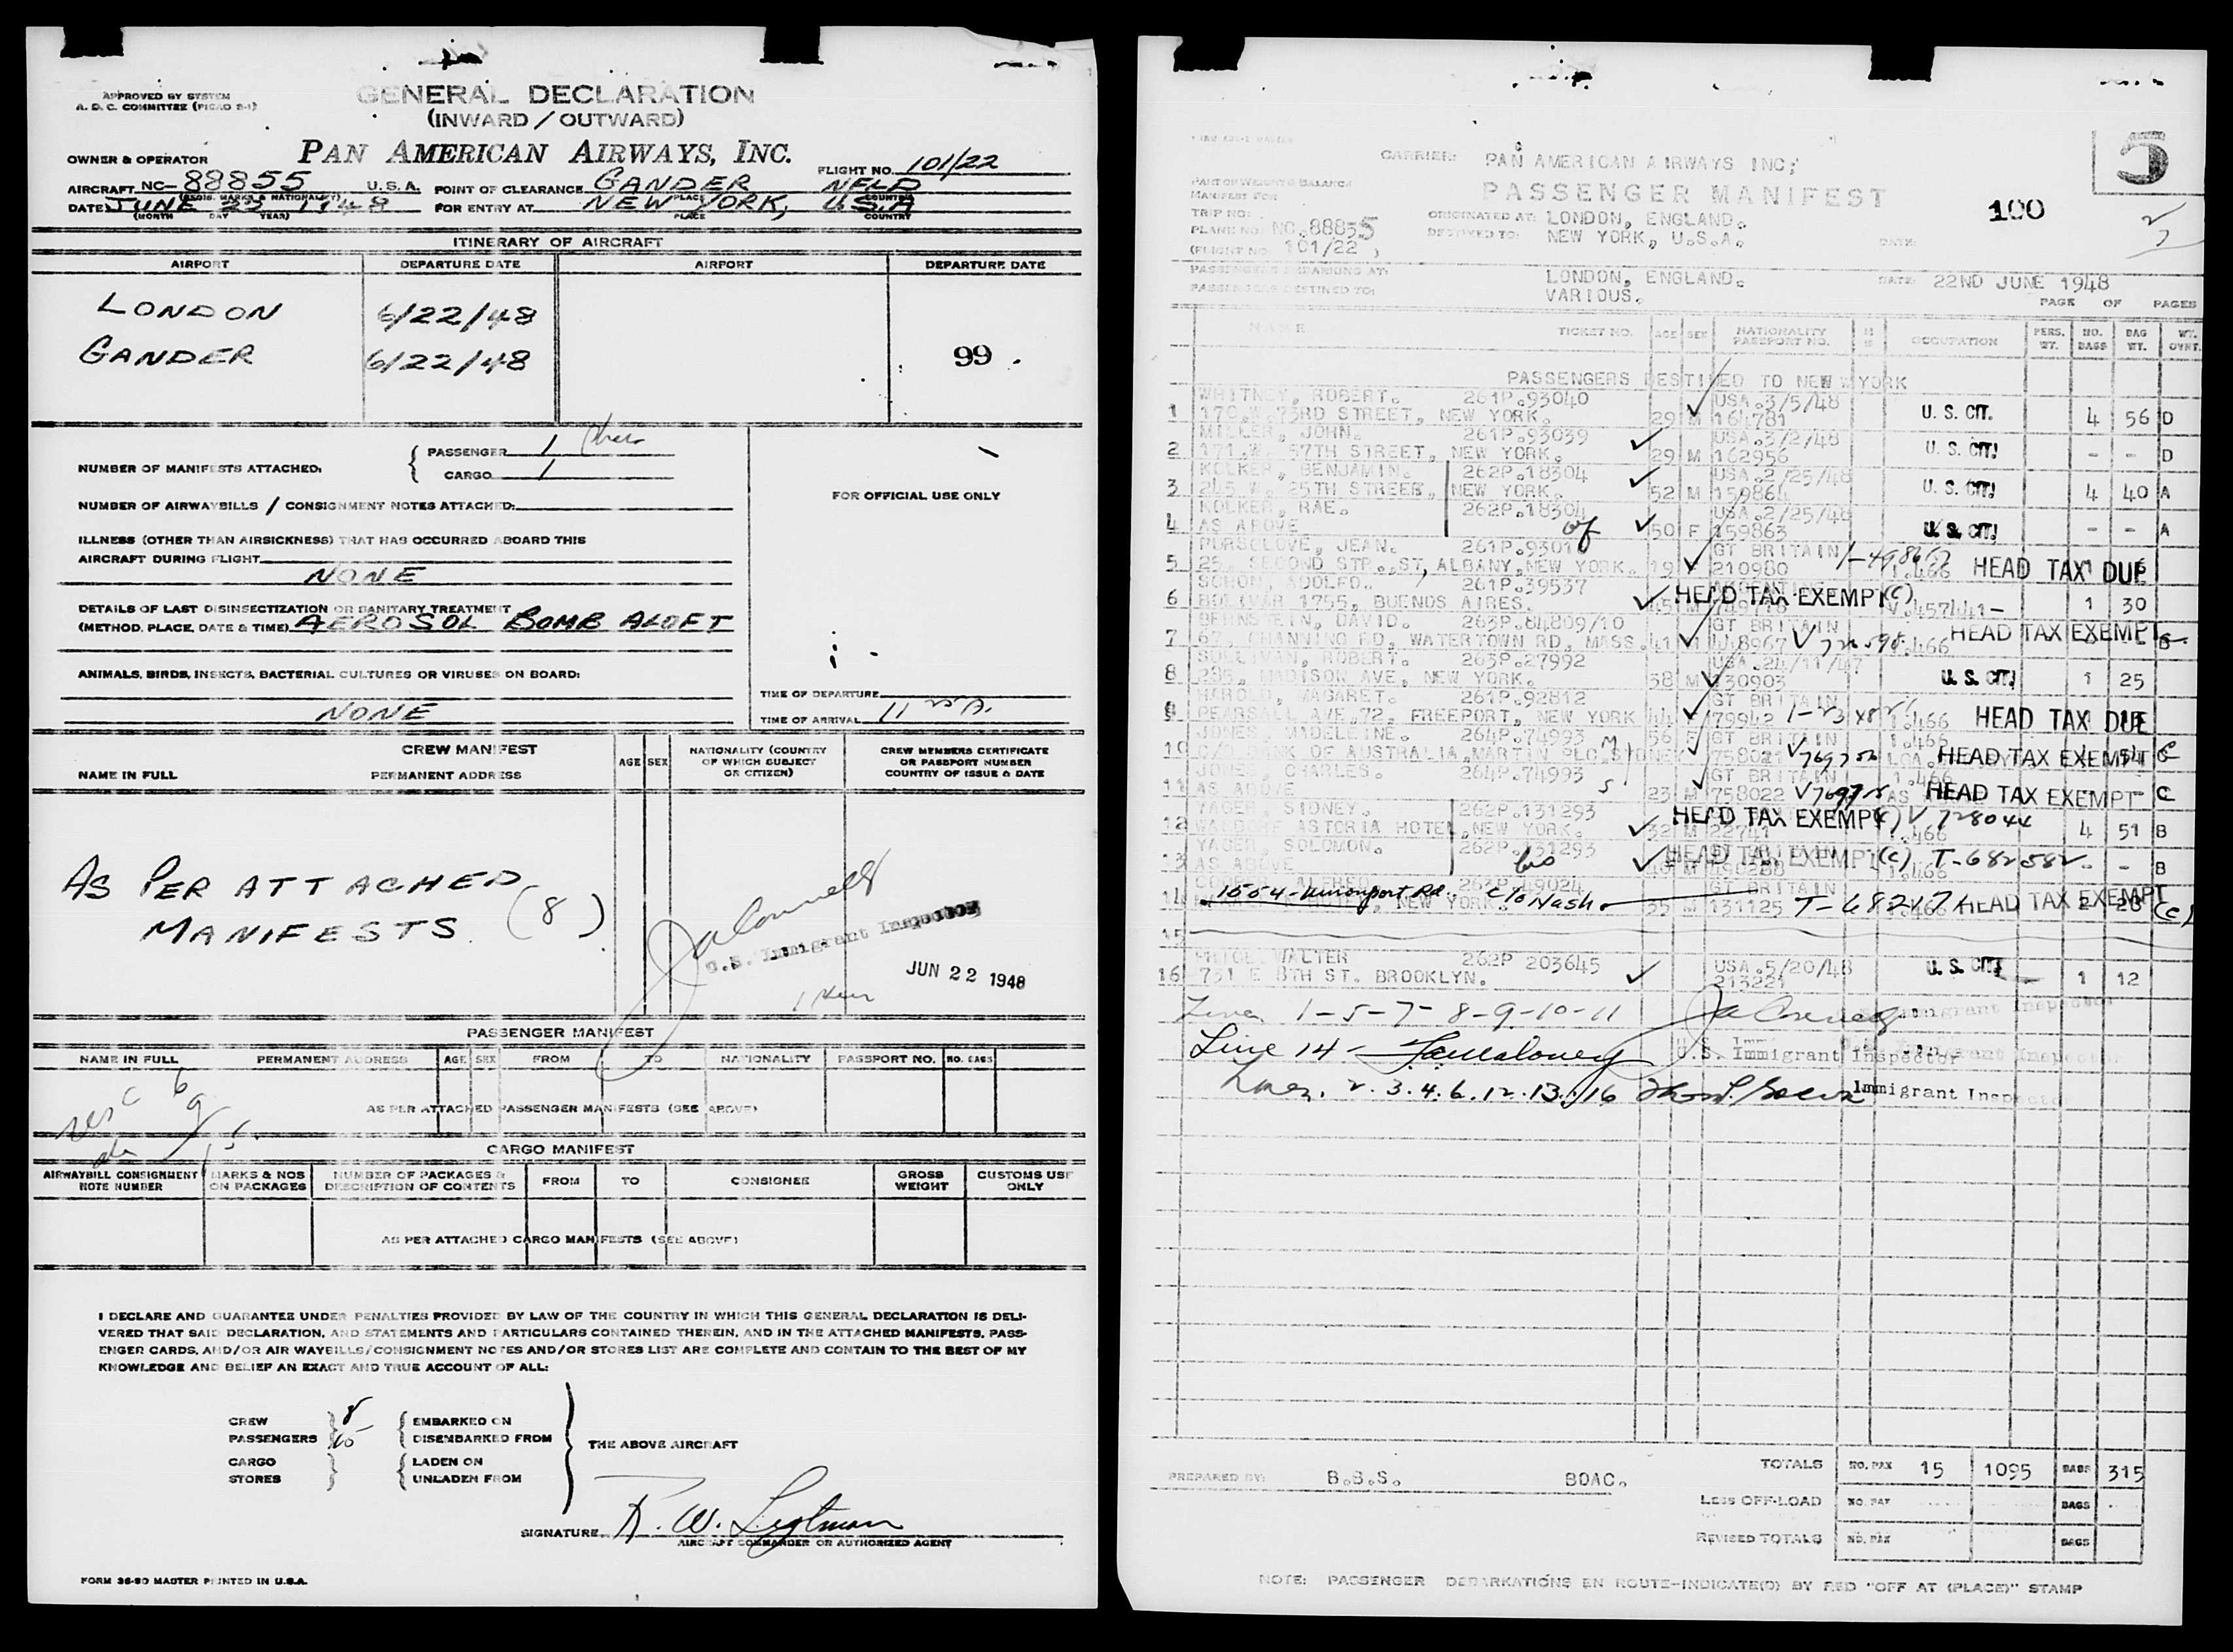 APPROVED BY SYSTEM
A. D. C. COMMITTEE (PICAO S-1)
GENERAL DECLARATION
(INWARD / OUTWARD)
OWNER & OPERATOR PAN AMERICAN AIRWAYS, INC. FLIGHT NO. 101/22
AIRCRAFT NC- 88855 U.S.A. POINT OF CLEARANCE GANDER NFLD
(REGIS. MARKS & NATIONALITY) PLACE COUNTRY
DATE JUNE 1948 FOR ENTRY AT NEW YORK, USA
(MONTH DAY YEAR) PLACE COUNTRY
ITINERARY OF AIRCRAFT
AIRPORT DEPARTURE DATE AIRPORT DEPARTURE DATE
LONDON 6/22/48
GANDER 6/22/48 99
NUMBER OF MANIFESTS ATTACHED: PASSENGER 1
CARGO 1
NUMBER OF AIRWAYBILLS / CONSIGNMENT NOTES ATTACHED:
FOR OFFICIAL USE ONLY
ILLNESS (OTHER THAN AIRSICKNESS) THAT HAS OCCURRED ABOARD THIS
AIRCRAFT DURING FLIGHT
NONE
DETAILS OF LAST DISINSECTIZATION OR SANITARY TREATMENT
(METHOD, PLACE, DATE & TIME) AEROSOL BOMB ALOFT
ANIMALS, BIRDS, INSECTS, BACTERIAL CULTURES OR VIRUSES ON BOARD:
NONE
TIME OF DEPARTURE
TIME OF ARRIVAL 11 25 A.
CREW MANIFEST
NAME IN FULL PERMANENT ADDRESS AGE SEX NATIONALITY (COUNTRY OF WHICH SUBJECT OR CITIZEN) CREW MEMBERS CERTIFICATE OR PASSPORT NUMBER COUNTRY OF ISSUE & DATE
AS PER ATTACHED
MANIFESTS (8)
U.S. Immigrant Inspector
JUN 22 1948
PASSENGER MANIFEST
NAME IN FULL PERMANENT ADDRESS AGE SEX FROM TO NATIONALITY PASSPORT NO. NO. BAGS
AS PER ATTACHED PASSENGER MANIFESTS (SEE ABOVE)
CARGO MANIFEST
AIRWAYBILL CONSIGNMENT NOTE NUMBER MARKS & NOS ON PACKAGES NUMBER OF PACKAGES & DESCRIPTION OF CONTENTS FROM TO CONSIGNEE GROSS WEIGHT CUSTOMS USE ONLY
AS PER ATTACHED CARGO MANIFESTS (SEE ABOVE)
I DECLARE AND GUARANTEE UNDER PENALTIES PROVIDED BY LAW OF THE COUNTRY IN WHICH THIS GENERAL DECLARATION IS DELI-
VERED THAT SAID DECLARATION, AND STATEMENTS AND PARTICULARS CONTAINED THEREIN, AND IN THE ATTACHED MANIFESTS, PASS-
ENGER CARDS, AND/OR AIR WAYBILLS/CONSIGNMENT NOTES AND/OR STORES LIST ARE COMPLETE AND CONTAIN TO THE BEST OF MY
KNOWLEDGE AND BELIEF AN EXACT AND TRUE ACCOUNT OF ALL:
CREW 8 EMBARKED ON
PASSENGERS 15 DISEMBARKED FROM
THE ABOVE AIRCRAFT
CARGO LADEN ON
STORES UNLADEN FROM
SIGNATURE
AIRCRAFT COMMANDER OR AUTHORIZED AGENT
FORM 36-80 MASTER PRINTED IN U.S.A.
5
CARRIER: PAN AMERICAN AIRWAYS INC;
PART OF WEIGHT & BALANCE
MANIFEST FOR
PASSENGER MANIFEST
100
TRIP NO:
PLANE NO: NC.88855
(FLIGHT NO. 101/22 )
ORIGINATED AT: LONDON, ENGLAND.
DESTINED TO: NEW YORK, U.S.A.
DATE:
PASSENGERS EMBARKING AT: LONDON, ENGLAND. DATE: 22ND JUNE 1948
PASSENGERS DESTINED TO: VARIOUS.
PAGE OF PAGES
NAME TICKET NO. AGE SEX NATIONALITY PASSPORT NO. OCCUPATION PERS. WT. NO. BAGS BAG WT. WT. OVNT.
PASSENGERS DESTINED TO NEW YORK
WHITNEY, ROBERT. 261P.93040 USA.3/5/48
1 170.W.73RD STREET, NEW YORK. 29 M 164781 U. S. CIT. 4 56 D
MILLER, JOHN. 261P.93039 USA.3/2/48
2 171.W. 57TH STREET, NEW YORK. 29 M 162956 U. S. CIT. - - D
KOLKER, BENJAMIN. 262P.18304 USA.2/25/48
3 245 W. 25TH STREEB, NEW YORK. 52 M 159864 U. S. CIT. 4 40 A
KOLKER, RAE. 262P.18304 USA.2/25/48
4 AS ABOVE 50 F 159863 U. S. CIT. - - A
PURSGLOVE, JEAN. GT BRITAIN
5 25, SECOND STR.,ST, ALBANY,NEW YORK. 19 F 210980 1.466 HEAD TAX DUE
SCHON, ADOLFO. 261P.39537
6 BOLIVAR 1755, BUENOS AIRES. 45 M HEAD TAX EXEMPT (C) 1 30
BERNSTEIN, DAVID. 263P.84809/10 GT BRITAIN
7 67, CHANNING RD, WATERTOWN RD, MASS. 41 M HEAD TAX EXEMPT
SULLIVAN, ROBERT. 263P.27992 USA.24/11/47
8 285, MADISON AVE, NEW YORK. 38 M 130903 U. S. CIT. 1 25
HAROLD, MAGARET. 261P.92812 GT BRITAIN
9 PEARSALL AVE.72, FREEPORT, NEW YORK 44 F 79942 1.466 HEAD TAX DUE
JONES, MADELEINE. 264P.74993 56 F GT BRITAIN 1.466
10 BANK OF AUSTRALIA,MARTIN PLC,SYDNEY HEAD TAX EXEMPT C
JONES, CHARLES. 264P.74993 GT BRITAIN 1.466
11 AS ABOVE 23 M 758022 HEAD TAX EXEMPT C
YAGER, SIDNEY. 262P.131293 HEAD TAX EXEMPT (c) V 728044
12 WALDORF ASTORIA HOTEL,NEW YORK. 32 M 1.466 4 51 B
YAGER, SOLOMON. 262P.131293 HEAD TAX EXEMPT (c) T-682582
13 AS ABOVE 40 M 1.466 - - B
COOPER, ALFRED. 263P.49024 GT BRITAIN
14 NEW YORK. c/o Nash 35 M 131125 HEAD TAX EXEMPT (c)
15
PRICE WALTER 262P 203645 USA.5/20/48
16 731 E 8TH ST. BROOKLYN. 213221 U. S. CIT. - 1 12
Lines 1-5-7-8-9-10-11 Immigrant Inspector
Line 14- U.S. Immigrant Inspector
Lines. 2.3.4.6.12.13.16 Immigrant Inspector
PREPARED BY: B.S.S. BOAC.
TOTALS NO. PAX 15 1095 BAGS 315
LESS OFF-LOAD NO. PAX BAGS
REVISED TOTALS NO. PAX BAGS
NOTE: PASSENGER DEBARKATIONS EN ROUTE-INDICATE(D) BY RED "OFF AT (PLACE)" STAMP